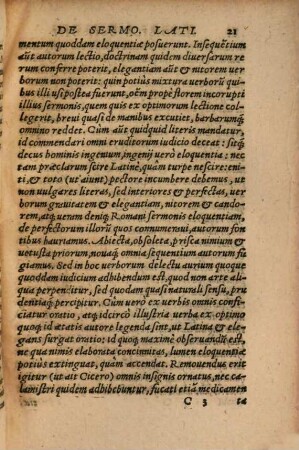 DE SERMO. LATI. 21
mentum quoddam eloquentiæ posuerunt. Insequẽtium
aũt autorum lectio, doctrinam quidem diuersarum re
rum conferre poterit, elegantiam aũt & nitorem uer
borum non poterit: quin potius mixtura uerborũ qui
bus illi usi postea fuerunt, oẽm propè florem incorrupti
illius sermonis, quem quis ex optimorum lectione col
legerit, breui quasi de manibus excutiet, barbarumq́;
omnino reddet. Cùm aũt quidquid literis mandatur,
id commendari omni eruditorum iudicio deceat: sitq́;
decus hominis ingenium, ingenij uerò eloquentia: nec
tam præclarum scire Latinè, quàm turpe nescire, eni
ti, & toto (ut aiunt) pectore incumbere debemus, ut
non uulgares literas, sed interiores & perfectas, uer
borum grauitatem & elegantiam, nitorem & cando
rem, atq; uenam deniq; Romani sermonis eloquentiam,
de perfectorum illorũ quos commemoraui, autorum fon
tibus hauriamus. Abiecta, obsoleta, prisca nimium &
uetusta priorum, nouaq́; omnia sequentium autorum fu
giamus. Sed in hoc uerborum delectu aurium quoque
quoddam iudicium adhibendum est, quod non arte ali
qua perpenditur, sed quodam quasi naturali sensu, pru
dentiaq́; percipitur. Cùm uerò ex uerbis omnis confi
ciatur oratio, atq; idcirco illustria uerba ex optimo
quoq; id ætatis autore legenda sint, ut Latina & ele
gans surgat oratio: id quoq; maximè obseruandũ est,
ne qua nimis elaborata concinnitas, lumen eloquentiæ
potius extinguat, quàm accendat. Remouendus erit
igitur (ut ait Cicero) omnis insignis ornatus, nec ca-
lamistri quidem adhibebuntur, fucati etiã medicamen
C 3 ta